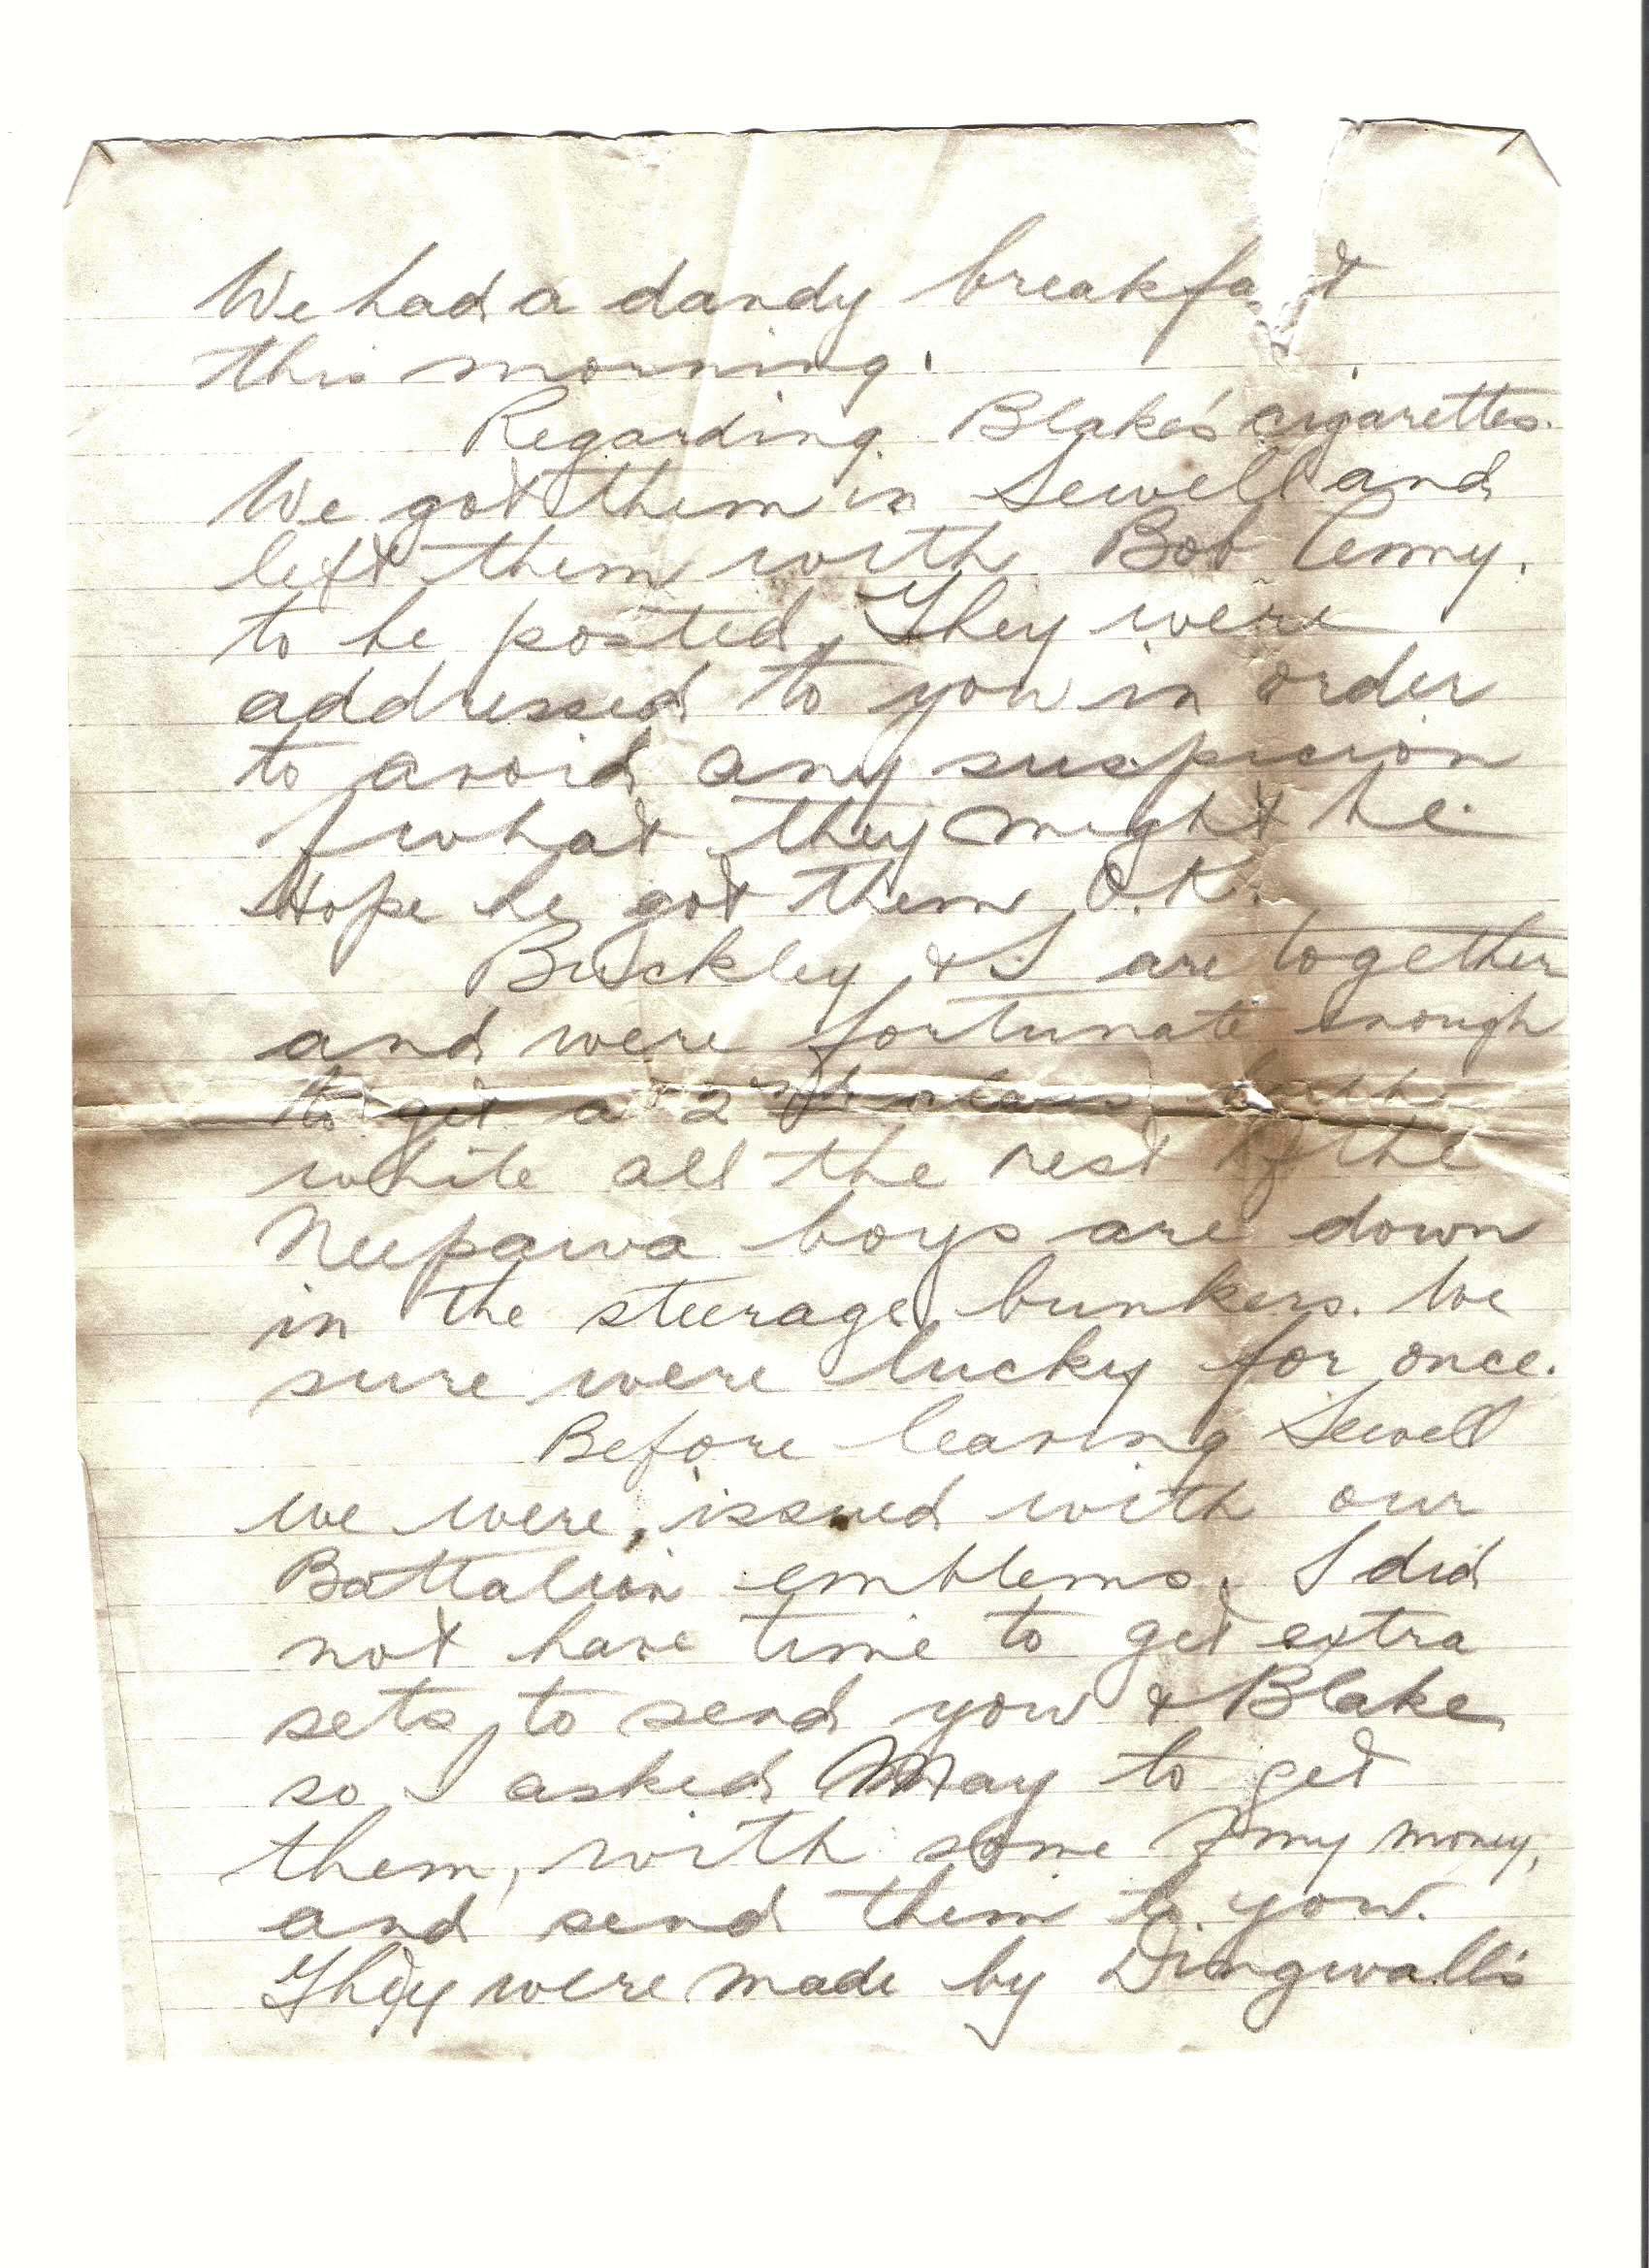 We had a dandy breakfa t
this morning.
Regarding Blake's cigarettes.
We got them in Sewell and
left them with Bob
to be posted. They were
addressed to you in order
to avoid any suspicion
of what they might be.
Hope he got them O.K.
Buckley & I are together
and were fortunate enough
to get a 2nd class berth
while all the rest of the
Neepawa boys are down
in the steerage bunkers. We
sure were lucky for once.
Before leaving Sewell
we were issued with our
Battalion emblems. I did
not have time to get extra
sets, to send you & Blake
so I asked May to get
them, with some of my money,
and send them to you.
They were made by Dingwall's